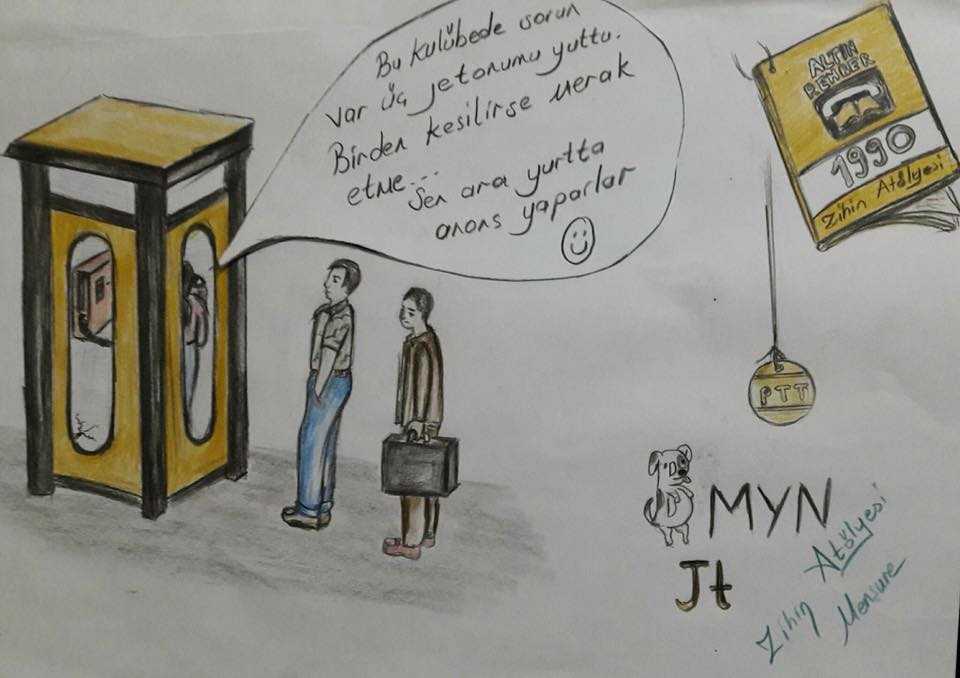 Bu kulübede sorun
var üç jetonumu yuttu.
Birden kesilirse merak
etme...
Sen ara yurtta
anons yaparlar
ALTIN
REHBER
1990
Zihin Atölyesi
PTT
MYN
Jt
Zihin Atölyesi
Mensure